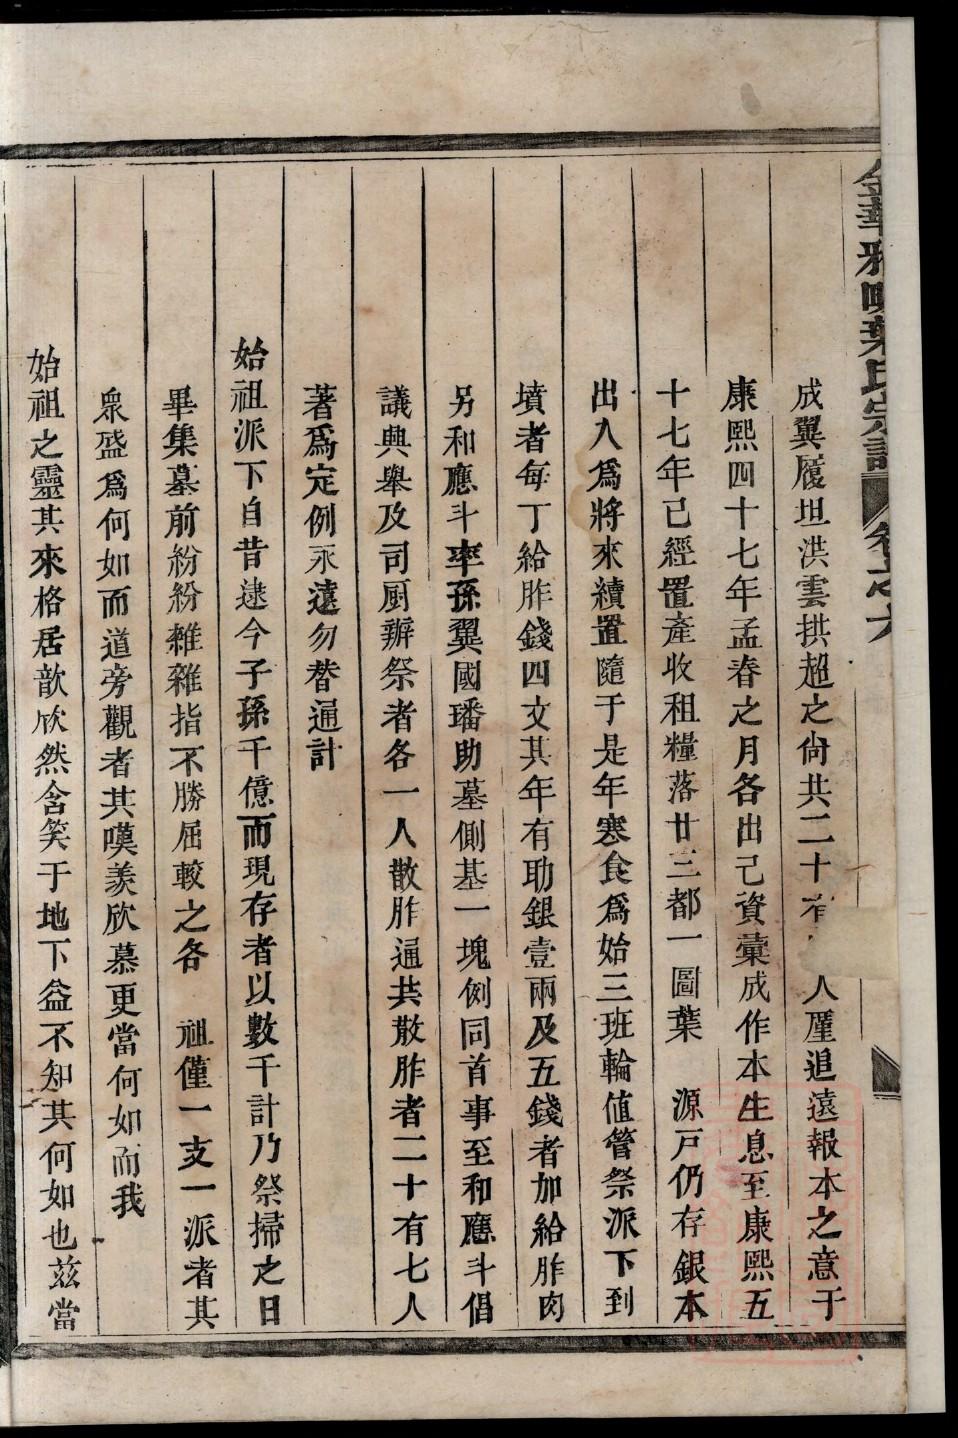 金華雅畈葉氏宗譜 卷之六
成翼履坦洪雲拱超之尙共二十有 人厪追遠報本之意于
康熙四十七年孟春之月各出己資彙成作本生息至康熙五
十七年已經置產收租糧落廿三都一圖葉 源戸仍存銀本
出入爲將來續置隨于是年寒食爲始三班輪値管祭派下到
墳者每丁給胙錢四文其年有助銀壹兩及五錢者加給胙肉
另和應斗率孫翼國璠助墓側基一塊例同首事至和應斗倡
議興舉及司厨辦祭者各一人散胙通共散胙者二十有七人
著爲定例永遠勿替通計
始祖派下自昔逮今子孫千億而現存者以數千計乃祭掃之日
畢集墓前紛紛雜雜指不勝屈較之各 祖僅一支一派者其
衆盛爲何如而道旁觀者其嘆羨欣慕更當何如而我
始祖之靈其來格居歆欣然含笑于地下益不知其何如也茲當